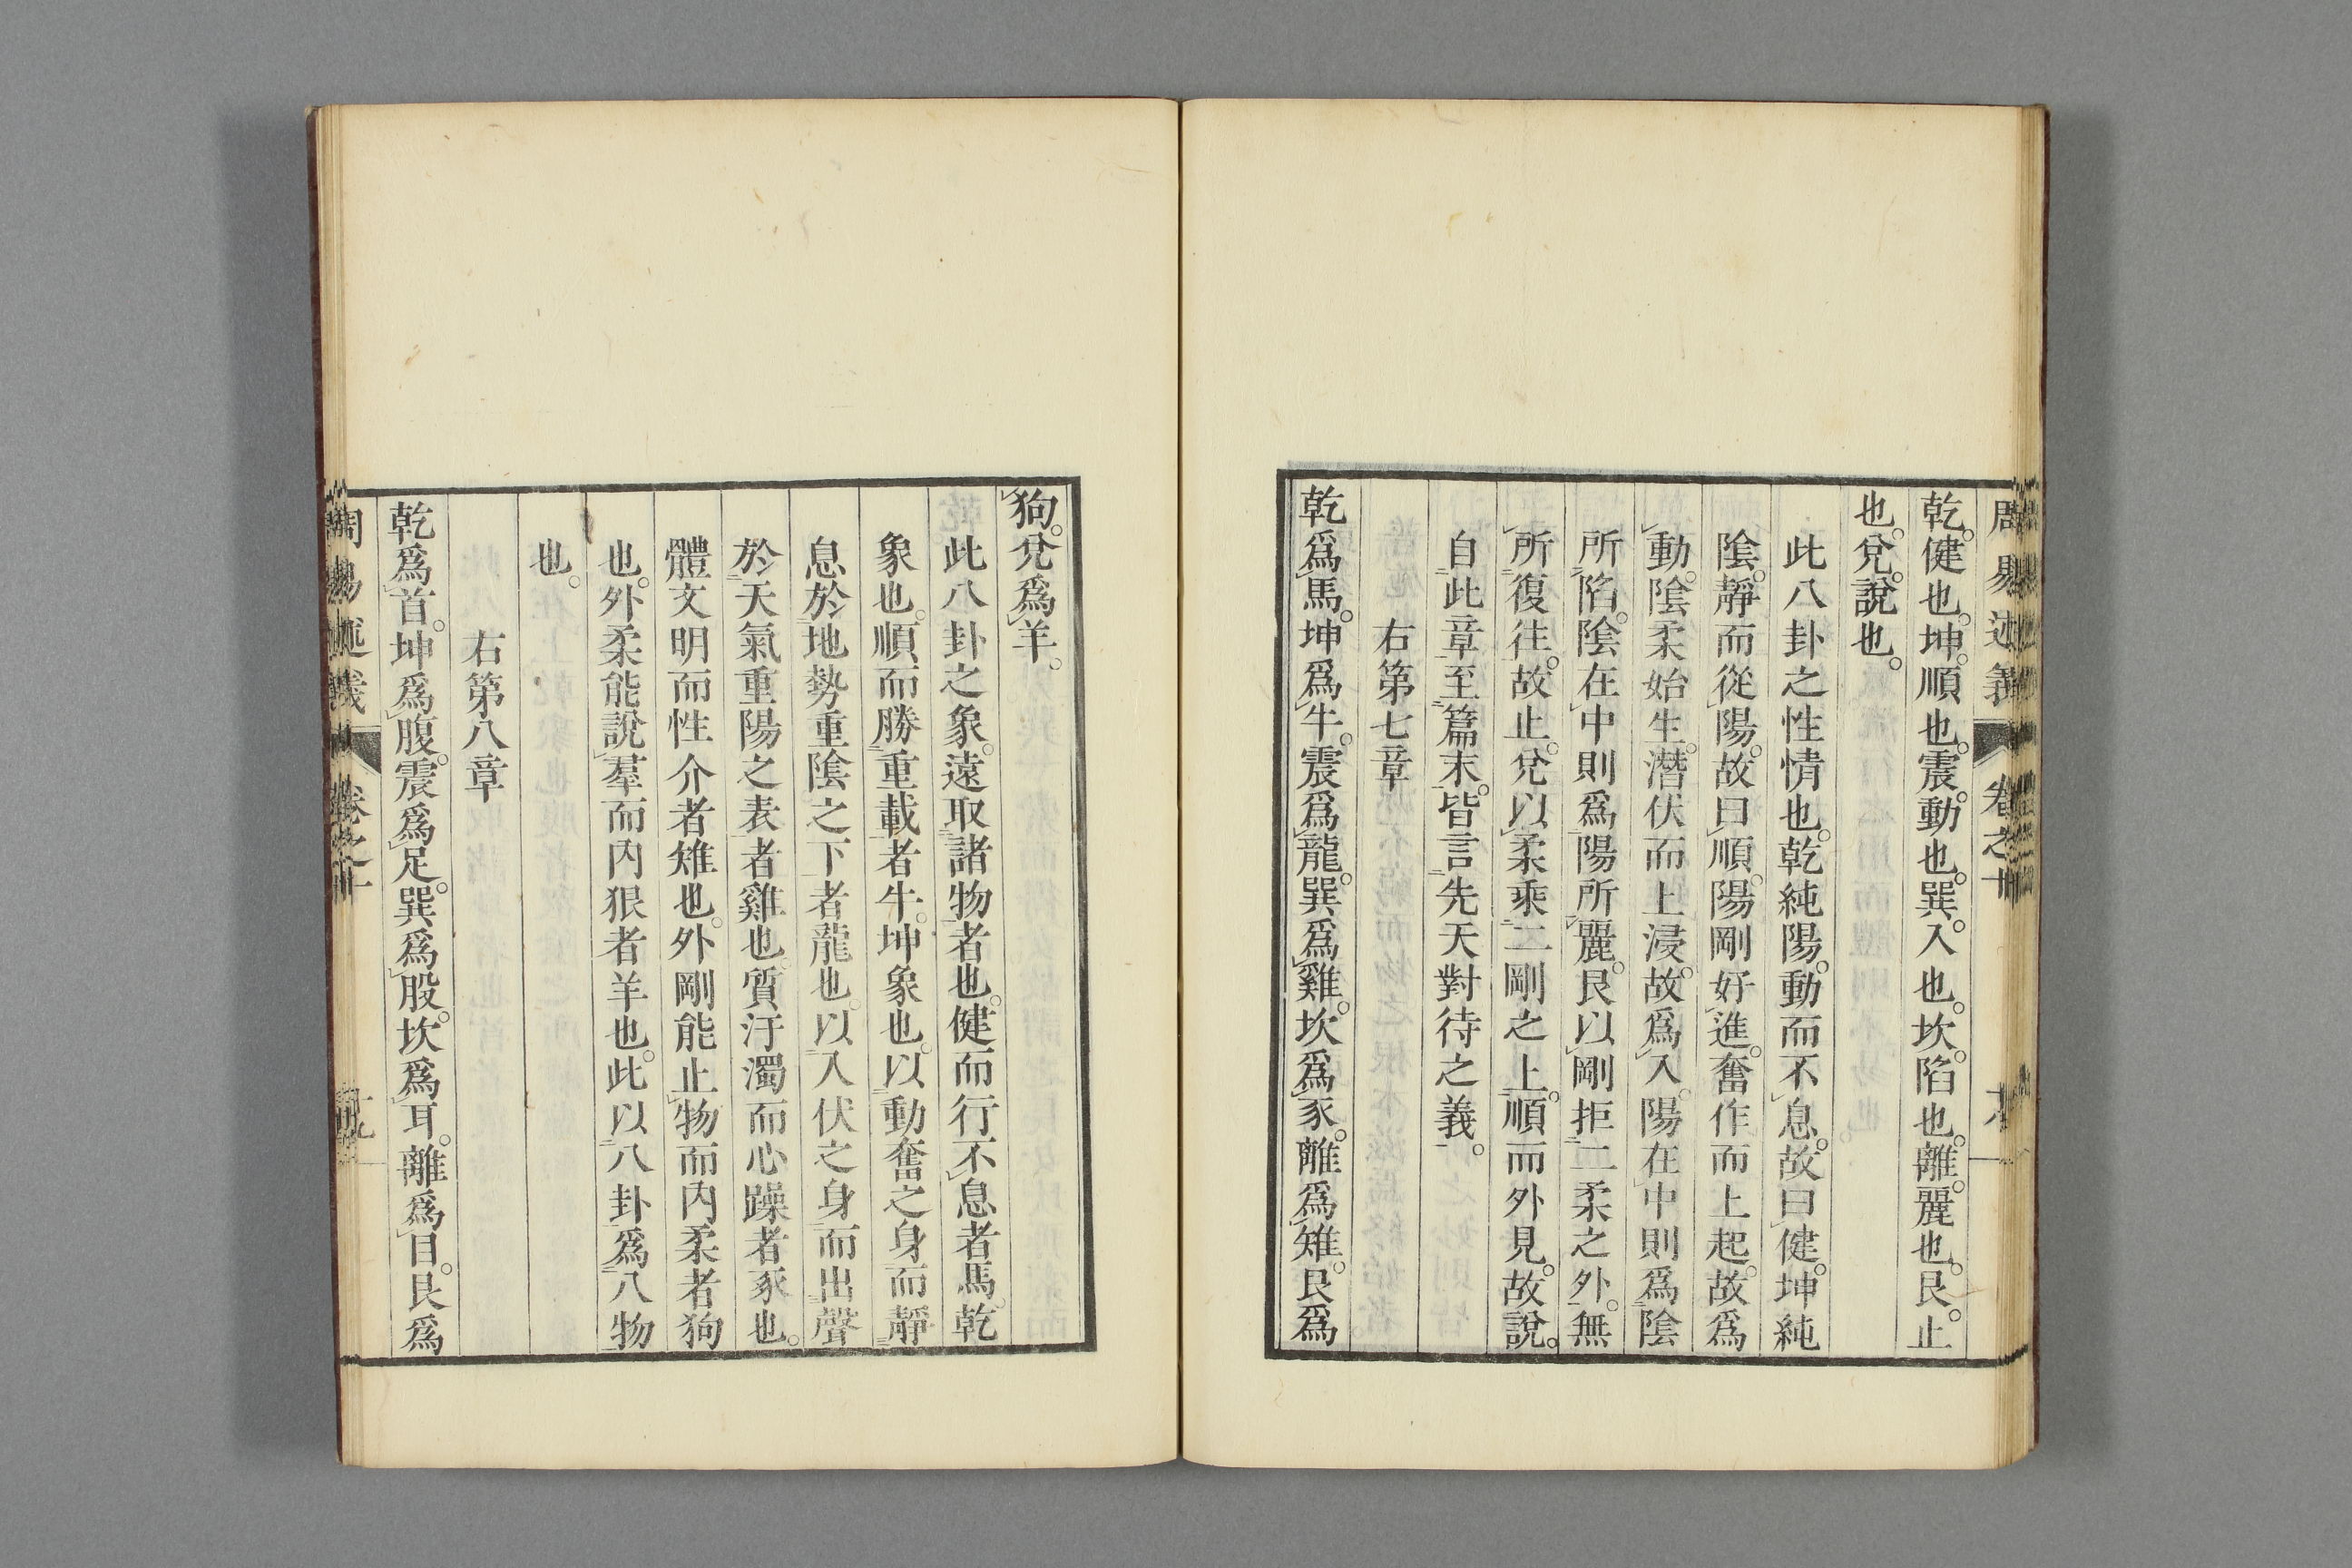 周易述義 卷之十
乾。健也。坤。順也。震。動也。巽。入也。坎。陷也。離。麗也。艮。止
也。兌。說也。
此八卦之性情也。乾純陽。動而不息。故曰健。坤純
陰。靜而從陽。故曰順。陽剛好進。奮作而上起。故爲
動。陰柔始生。潛伏而上浸。故爲入。陽在中則爲陰
所陷。陰在中則爲陽所麗。艮以剛拒二柔之外。無
所復往。故止。兌以柔乘二剛之上。順而外見。故說。
自此章至篇末。皆言先天對待之義。
右第七章
乾爲馬。坤爲牛。震爲龍。巽爲雞。坎爲豕。離爲雉。艮爲
狗。兌爲羊。
此八卦之象。遠取諸物者也。健而行不息者馬。乾
象也。順而勝重載者牛。坤象也。以動奮之身而靜
息於地勢重陰之下者龍也。以入伏之身而出聲
於天氣重陽之表者雞也。質汙濁而心躁者豕也。
體文明而性介者雉也。外剛能止物而內柔者狗
也。外柔能說羣而內狠者羊也。此以八卦爲八物
也。
右第八章
乾爲首。坤爲腹。震爲足。巽爲股。坎爲耳。離爲目。艮爲
周易述義 卷之十